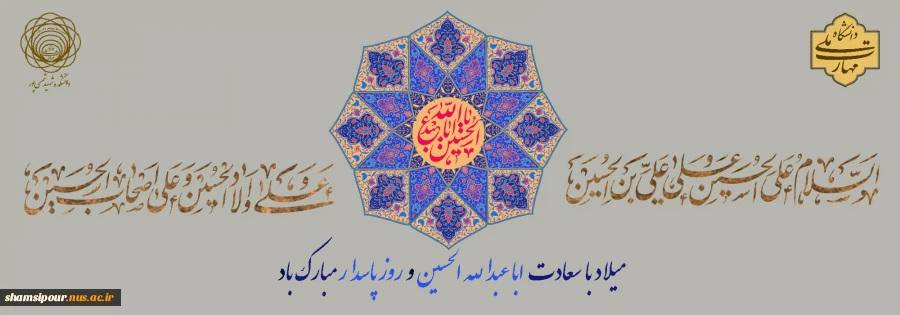 دانشگاه ملی مهارت
دانشکده شهید شمسی پور
یا اباعبدالله الحسین
السلام علی الحسین و علی علی بن الحسین
و علی اولاد الحسین و علی اصحاب الحسین
میلاد با سعادت اباعبدالله الحسین و روز پاسدار مبارک باد
shamsipour.nus.ac.ir